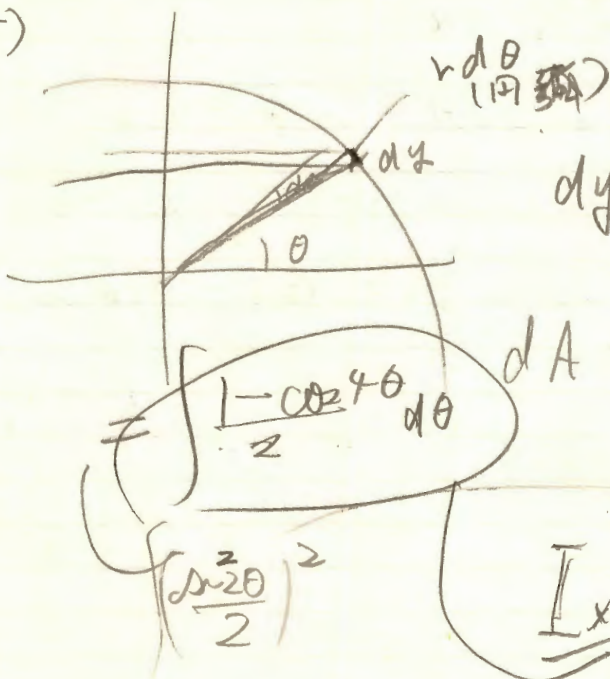 r dθ
(円弧)
dy
dy
θ
dA
= ∫ (1 - cos 4θ)/2 dθ
(sin 2θ / 2)²
I x